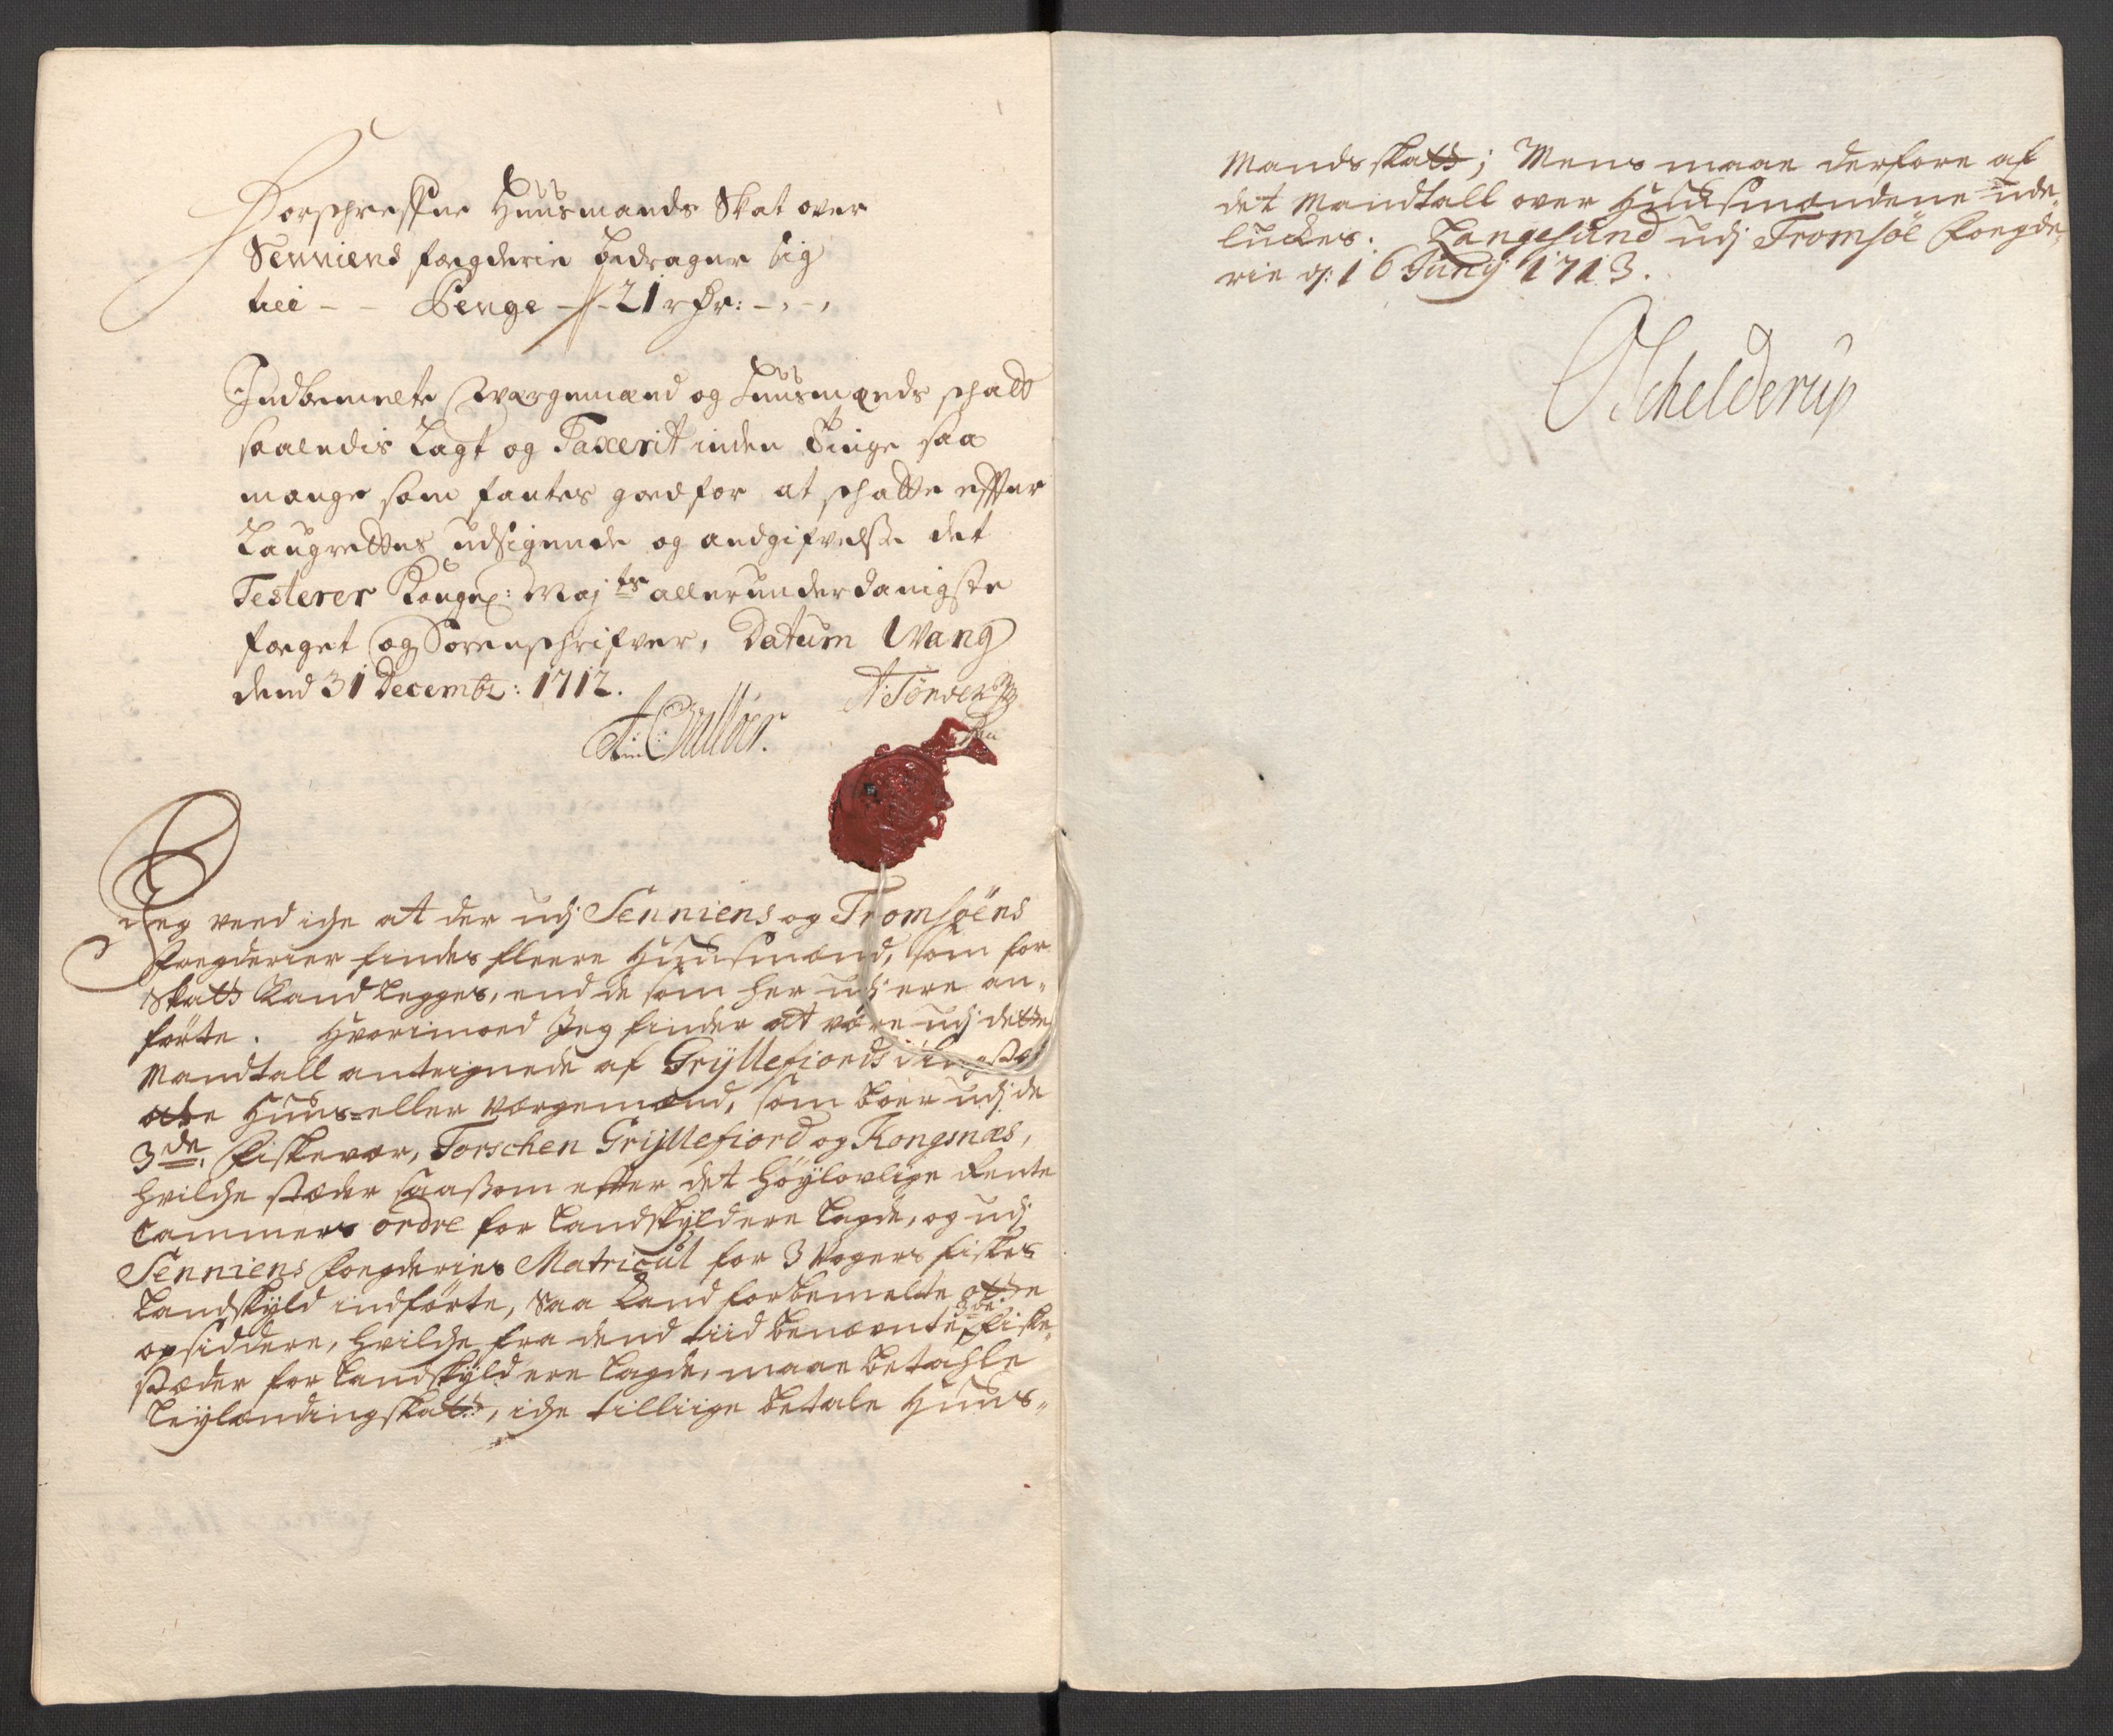 Forschrefne Huusmands Skat over
Senniens fogderie bedrager sig
till - - Penge - 21 rdr: -,-,
Indbemelte Wærgemænd og Huusmænds schatt
saaledis Lagt og Taxerit inden Tinge saa
mange som fantes goed for at schatte effter
Laugrettes udsigende og andgifvelsse det
Testerer Kongel: Maj ts allerunderdanigste
foeget og Sorenschrifver, Datum Wang
dend 31 Decembr: 1712.
A: Tönder
Jeg veed iche at der udj Senniens og Tromsöens
Foegderier findes fleere Huusmænd, som for
Skatt kand legges, end de som her udj ere an-
förte. Hvorimoed Jeg finder at være udj dette
Mandtall anteignede af Gryllefiords tingstæd
otte Huus= eller værgemænd, som boer udj de
3de. Fiskevær, Torschen Gryllefiord og Kongsnæs,
hvilche stæder saasom efter det höylovlige Rente
Cammers ordre for Landskyld ere lagde, og udj
Senniens Foegderies Matricul for 3 Vogers fiskes
Landskyld indförte, saa kand forbemelte otte
opsiddere, hvilche fra dend tiid benævnte 3de Fiske-
stæder for Landskyld ere lagde, maae betahle
Leylændingskatt, iche tilliige betale Huus-
Mandsskatt; Mens maae derfore af
det Mandtall over Huusmændene ude-
luckes. Langesund udj Tromsöe Foegde-
rie d: 16 Junij 1713.
O Schelderup